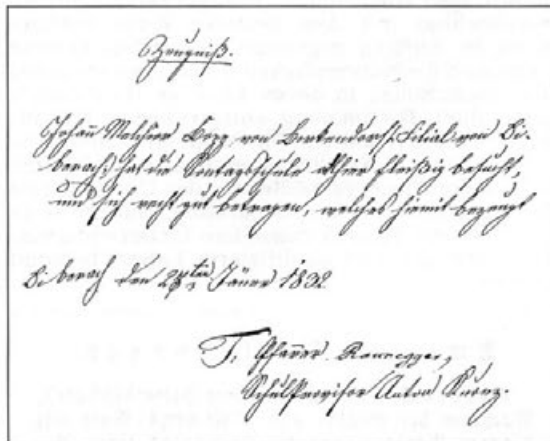 Zeugniß.
Johann Melchior Bopp von Birkendorf /:Filial von Bi-
berach:/ hat die Sontagsschule allhier fleißig besucht,
und sich recht gut betragen, welches hiemit bezeugt
Biberach den 28ten Jäner 1832
T: Pfarrer Ronnegger,
Schulprovisor Anton Kunz.